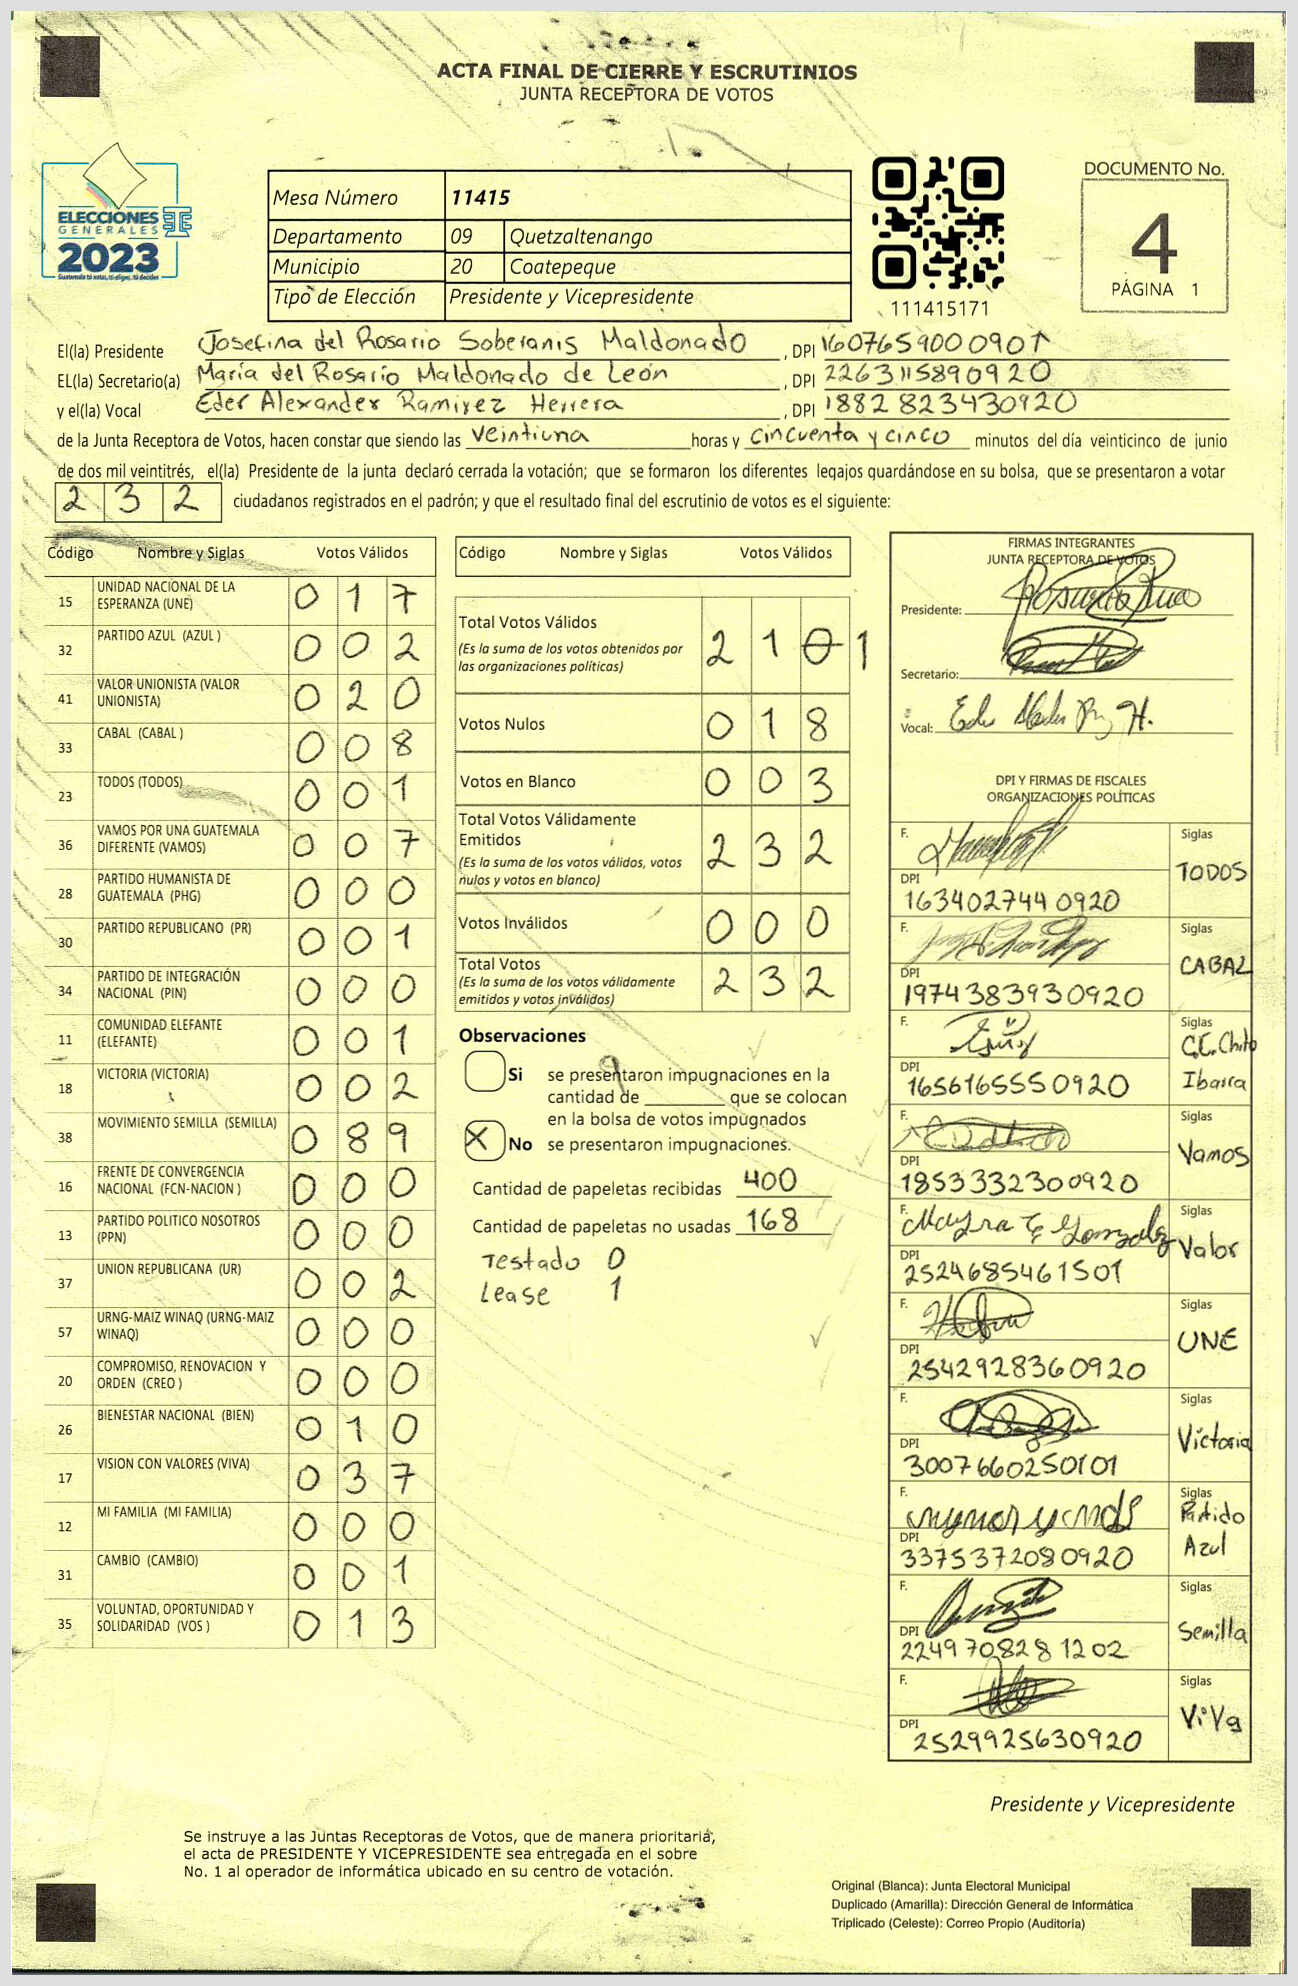 ACTA FINAL DE CIERRE Y ESCRUTINIOS
JUNTA RECEPTORA DE VOTOS
ELECCIONES
GENERALES
2023
Guatemala tú votas, tú eliges, tú decides
Mesa Número 11415
Departamento 09 Quetzaltenango
Municipio 20 Coatepeque
Tipo de Elección Presidente y Vicepresidente
111415171
DOCUMENTO No.
4
PÁGINA 1
El(la) Presidente Josefina del Rosario Soberanis Maldonado , DPI 1607659000901
EL(la) Secretario(a) María del Rosario Maldonado de León , DPI 2263115890920
y el(la) Vocal Eder Alexander Ramirez Herrera , DPI 1882823430920
de la Junta Receptora de Votos, hacen constar que siendo las veintiuna horas y cincuenta y cinco minutos del día veinticinco de junio
de dos mil veintitrés, el(la) Presidente de la junta declaró cerrada la votación; que se formaron los diferentes legajos guardándose en su bolsa, que se presentaron a votar
232 ciudadanos registrados en el padrón; y que el resultado final del escrutinio de votos es el siguiente:
Código Nombre y Siglas Votos Válidos
15 UNIDAD NACIONAL DE LA ESPERANZA (UNE) 017
32 PARTIDO AZUL (AZUL ) 002
41 VALOR UNIONISTA (VALOR UNIONISTA) 020
33 CABAL (CABAL ) 008
23 TODOS (TODOS) 001
36 VAMOS POR UNA GUATEMALA DIFERENTE (VAMOS) 007
28 PARTIDO HUMANISTA DE GUATEMALA (PHG) 000
30 PARTIDO REPUBLICANO (PR) 001
34 PARTIDO DE INTEGRACIÓN NACIONAL (PIN) 000
11 COMUNIDAD ELEFANTE (ELEFANTE) 001
18 VICTORIA (VICTORIA) 002
38 MOVIMIENTO SEMILLA (SEMILLA) 089
16 FRENTE DE CONVERGENCIA NACIONAL (FCN-NACION ) 000
13 PARTIDO POLITICO NOSOTROS (PPN) 000
37 UNION REPUBLICANA (UR) 002
57 URNG-MAIZ WINAQ (URNG-MAIZ WINAQ) 000
20 COMPROMISO, RENOVACION Y ORDEN (CREO ) 000
26 BIENESTAR NACIONAL (BIEN) 010
17 VISION CON VALORES (VIVA) 037
12 MI FAMILIA (MI FAMILIA) 000
31 CAMBIO (CAMBIO) 001
35 VOLUNTAD, OPORTUNIDAD Y SOLIDARIDAD (VOS ) 013
Código Nombre y Siglas Votos Válidos
Total Votos Válidos 2101
(Es la suma de los votos obtenidos por
las organizaciones políticas)
Votos Nulos 018
Votos en Blanco 003
Total Votos Válidamente
Emitidos 232
(Es la suma de los votos válidos, votos
nulos y votos en blanco)
Votos Inválidos 000
Total Votos 232
(Es la suma de los votos válidamente
emitidos y votos inválidos)
Observaciones
Si se presentaron impugnaciones en la
cantidad de 9 que se colocan
en la bolsa de votos impugnados
X No se presentaron impugnaciones.
Cantidad de papeletas recibidas 400
Cantidad de papeletas no usadas 168
Testado 0
Lease 1
FIRMAS INTEGRANTES
JUNTA RECEPTORA DE VOTOS
Presidente:
Secretario:
Vocal:
DPI Y FIRMAS DE FISCALES
ORGANIZACIONES POLÍTICAS
F. Siglas TODOS
DPI 1634027440920
F. Siglas CABAL
DPI 1974383930920
F. Siglas C.C. Chito Ibarra
DPI 1656165550920
F. Siglas Vamos
DPI 1853332300920
F. Mayra E Gonzalez Siglas Valor
DPI 2524685461501
F. Siglas UNE
DPI 2542928360920
F. Siglas Victoria
DPI 3007660250101
F. Siglas Partido Azul
DPI 3375372080920
F. Siglas Semilla
DPI 2249708281202
F. Siglas ViVa
DPI 2529925630920
Presidente y Vicepresidente
Se instruye a las Juntas Receptoras de Votos, que de manera prioritaria,
el acta de PRESIDENTE Y VICEPRESIDENTE sea entregada en el sobre
No. 1 al operador de informática ubicado en su centro de votación.
Original (Blanca): Junta Electoral Municipal
Duplicado (Amarilla): Dirección General de Informática
Triplicado (Celeste): Correo Propio (Auditoría)